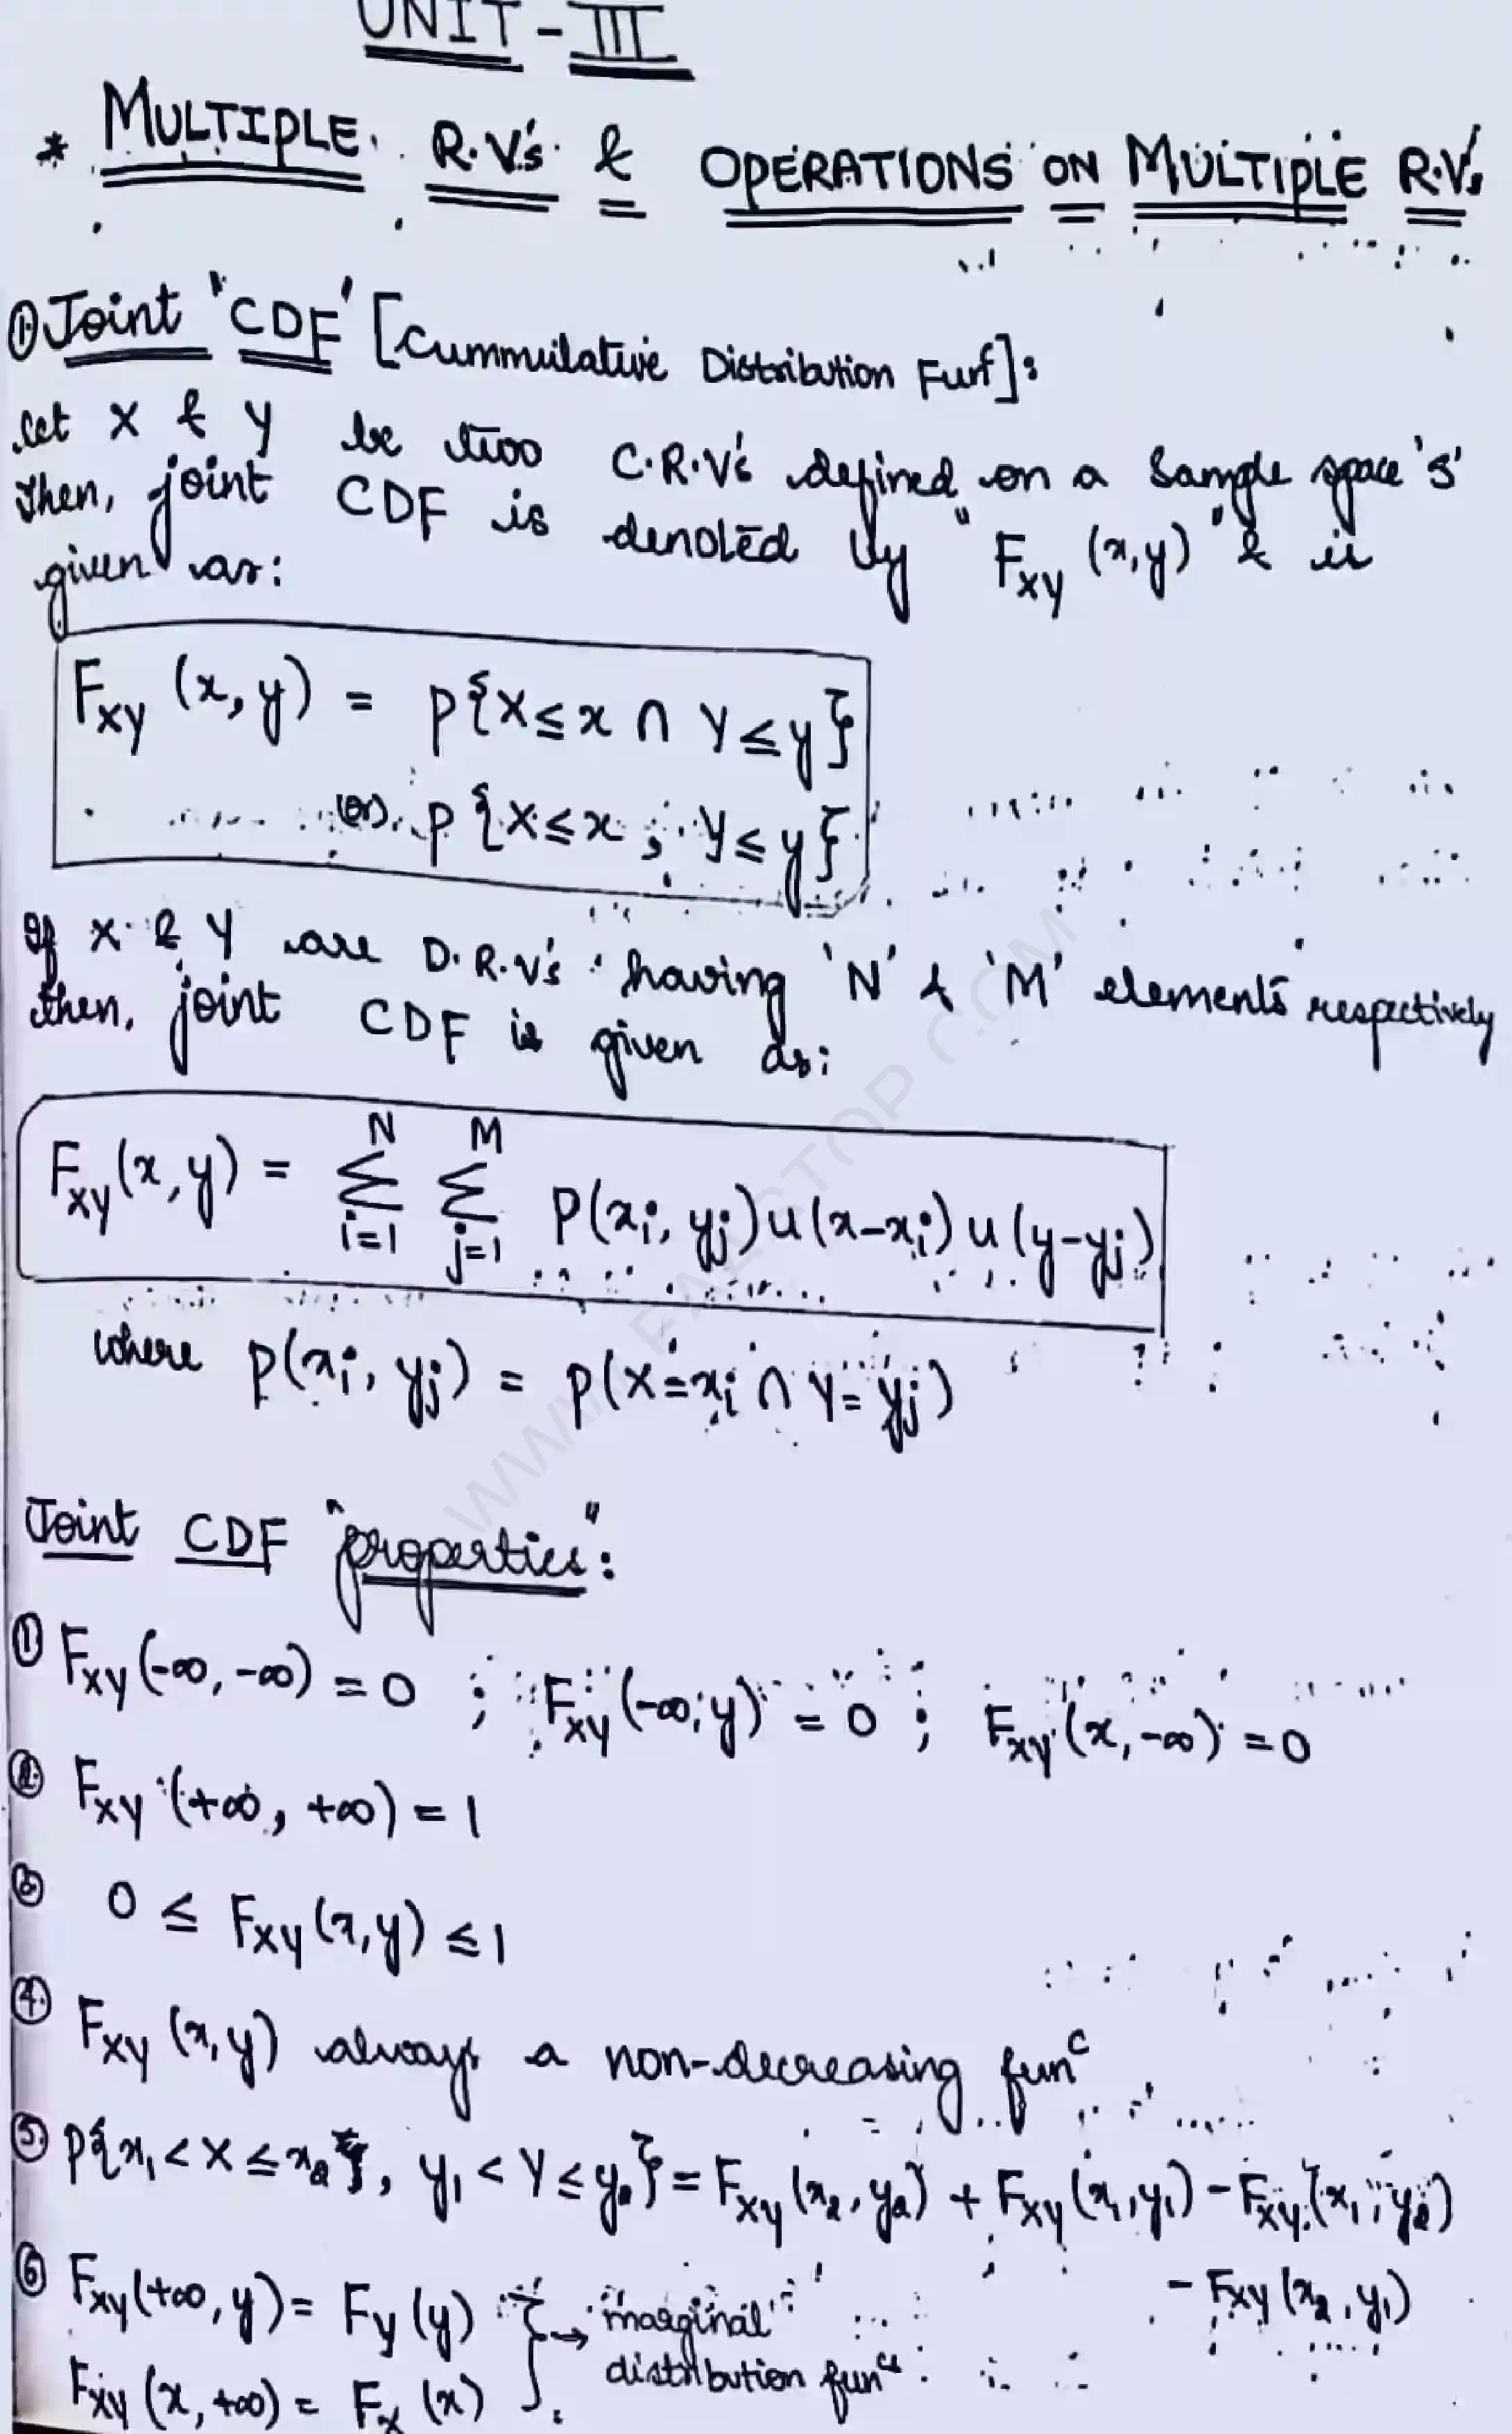 UNIT - III
* MULTIPLE R.V's & OPERATIONS ON MULTIPLE R.V's
① Joint "CDF" [Cummulative Distribution Funⁿ]:
let X & Y be two C.R.V's defined on a sample space 's'
then, joint CDF is denoted by "F_XY (x,y)" & is
given as:
F_XY (x,y) = P{X≤x ∩ Y≤y}
(or) P{X≤x ; Y≤y}
If X & Y are D.R.V's having 'N' & 'M' elements respectively
then, joint CDF is given as:
F_XY(x,y) = Σ_{i=1}^{N} Σ_{j=1}^{M} P(xi, yj) u(x-xi) u(y-yj)
where P(xi, yj) = P(X=xi ∩ Y=yj)
WWW.FALSTOP.COM
Joint CDF "properties":
① F_XY(-∞, -∞) = 0 ; F_XY(-∞, y) = 0 ; F_XY(x, -∞) = 0
② F_XY (+∞, +∞) = 1
③ 0 ≤ F_XY(x,y) ≤ 1
④ F_XY (x,y) always a non-decreasing funᶜ
⑤ P{x₁ < X ≤ x₂}, y₁ < Y ≤ y₂} = F_XY (x₂, y₂) + F_XY (x₁, y₁) - F_XY (x₁, y₂)
- F_XY (x₂, y₁)
⑥ F_XY(+∞, y) = F_Y (y) } → marginal
F_XY (x, +∞) = F_X (x) distribution funᶜˢ.